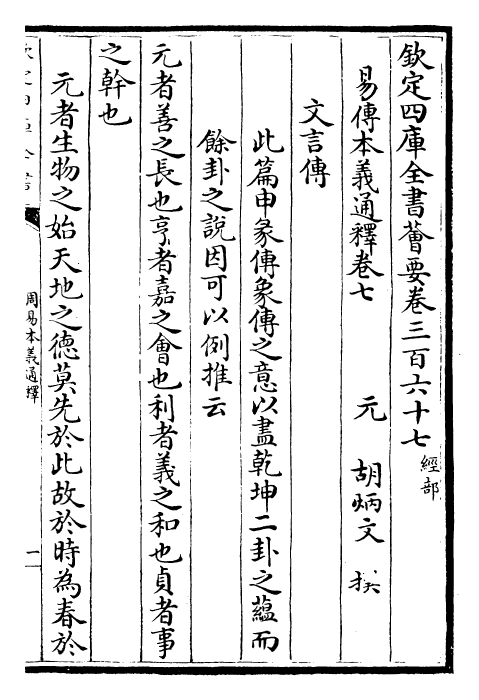 欽定四庫全書薈要卷三百六十七 經部
易傳本義通釋卷七
元 胡炳文 撰
文言傳
此篇申彖傳象傳之意以盡乾坤二卦之蘊而
餘卦之說因可以例推云
元者善之長也亨者嘉之會也利者義之和也貞者事
之幹也
元者生物之始天地之德莫先於此故於時為春於
周易本義通釋
一